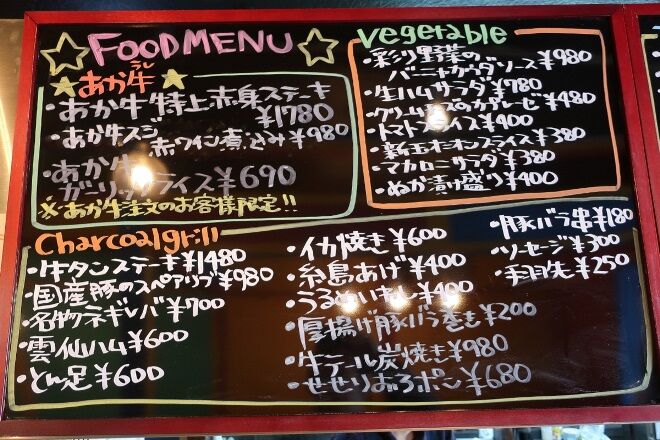 FOOD MENU
あか牛
・あか牛特上赤身ステーキ
¥1780
・あか牛スジ赤ワイン煮込み¥980
・あか牛
ガーリックライス¥690
※あか牛注文のお客様限定!!
Vegetable
・彩り野菜の
バーニャカウダソース¥980
・生ハムサラダ¥780
・クリームチーズのカプレーゼ¥480
・トマトスライス¥400
・新玉オニオンスライス¥380
・マカロニサラダ¥380
・ぬか漬け盛り¥400
Charcoal grill
・牛タンステーキ¥1480
・国産豚のスペアリブ¥980
・名物ネギレバ¥700
・雲仙ハム¥600
・とん足¥600
・イカ焼き¥600
・糸島あげ¥400
・うるめいわし¥400
・厚揚げ豚バラ巻き¥200
・牛テール炭焼き¥980
・せせりおろポン¥680
・豚バラ串¥180
・ソーセージ¥300
・手羽先¥250